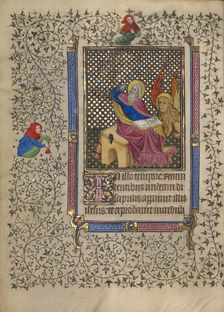 In illo tempore Recum
bentibus undecim di
scipulis apparuit illis
ihesus et exprobravit incredu